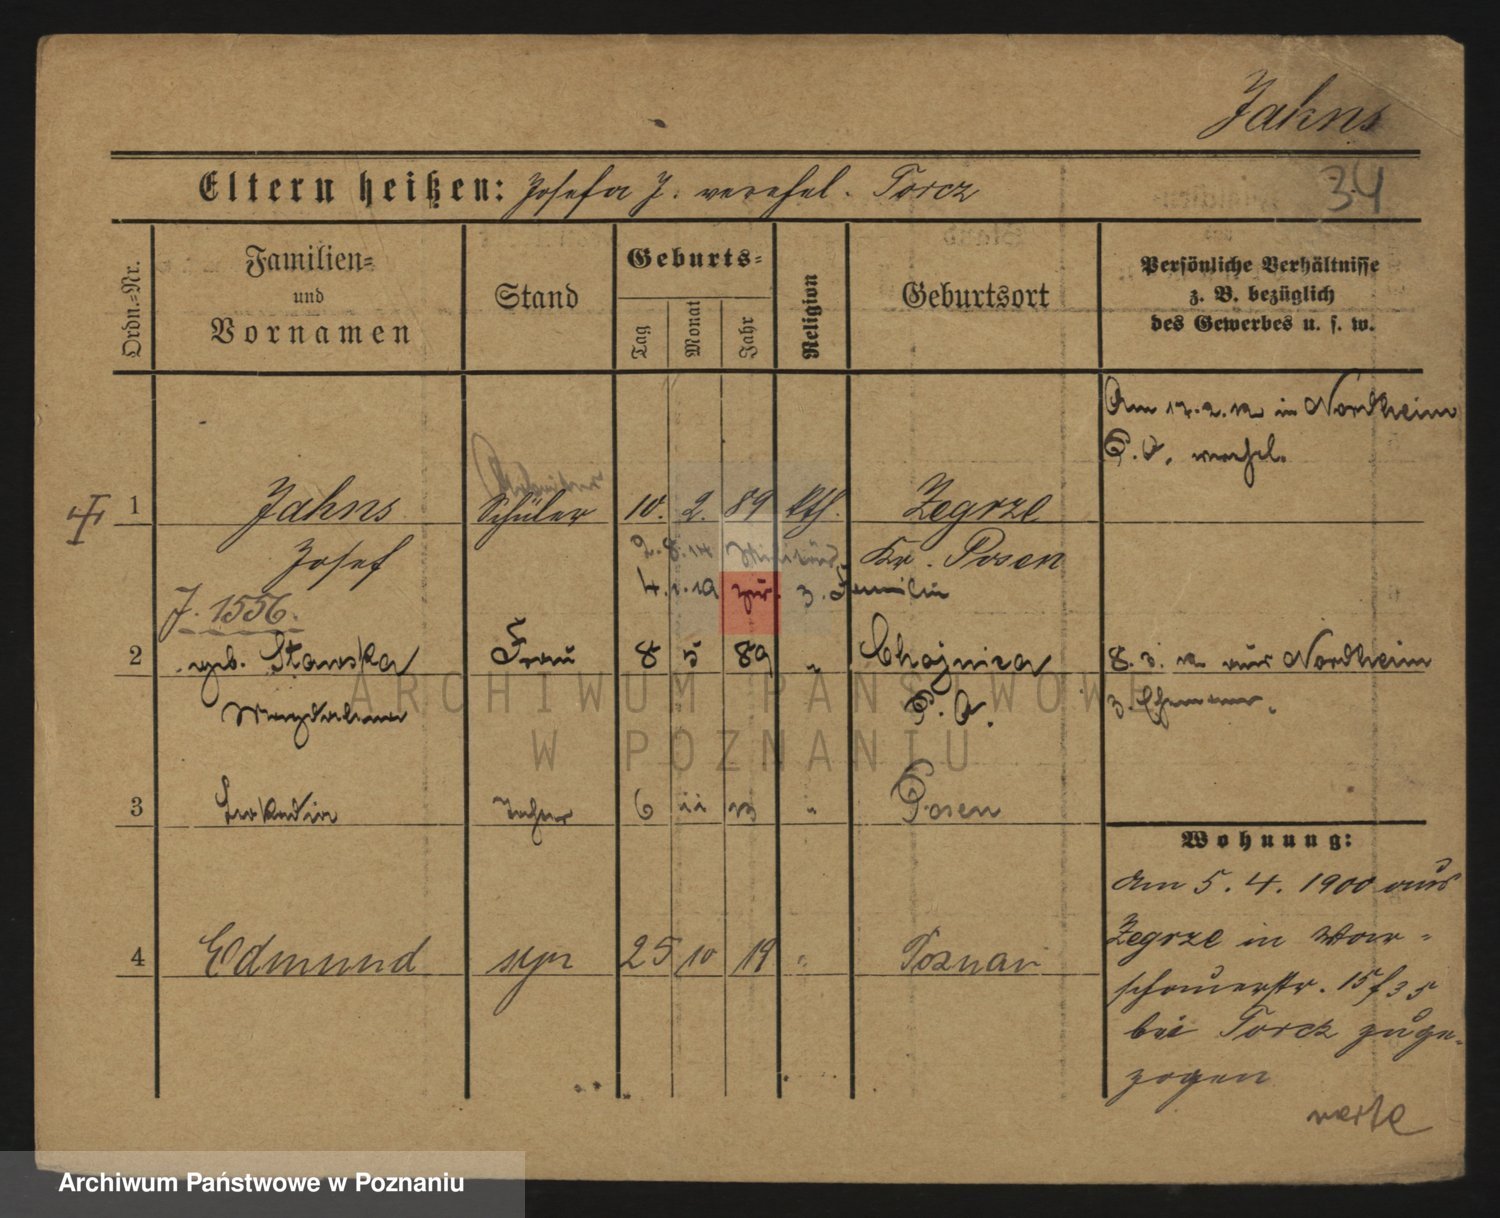 Jahns
34
Eltern heißen: Josefa J. verehel. Torcz
Ordn.=Nr.
Familien=
und
Vornamen
Stand
Geburts=
Tag
Monat
Jahr
Religion
Geburtsort
Persönliche Verhältnisse
z. B. bezüglich
des Gewerbes u. s. w.
Am 17.2.12 in Nordheim
P.A. verehel.
1 Jahns Schüler 10. 2. 89 kth. Zegrze
Josef Kr. Posen
2.8.14
4.1.19 zur. z. Familie
J. 1556.
2 geb. Stawska Frau 8 5 89 " Chojnica 8.3.12 aus Nordheim
Magdalena P.A. z. Ehemann.
3 Leokadia Tochter 6 11 13 " Posen
Wohnung:
Am 5. 4. 1900 aus
Zegrze in War-
schauerstr. 15
bei Torcz zuge-
zogen
4 Edmund syn 25 10 19 " Poznań
verte
ARCHIWUM PAŃSTWOWE
W POZNANIU
Archiwum Państwowe w Poznaniu